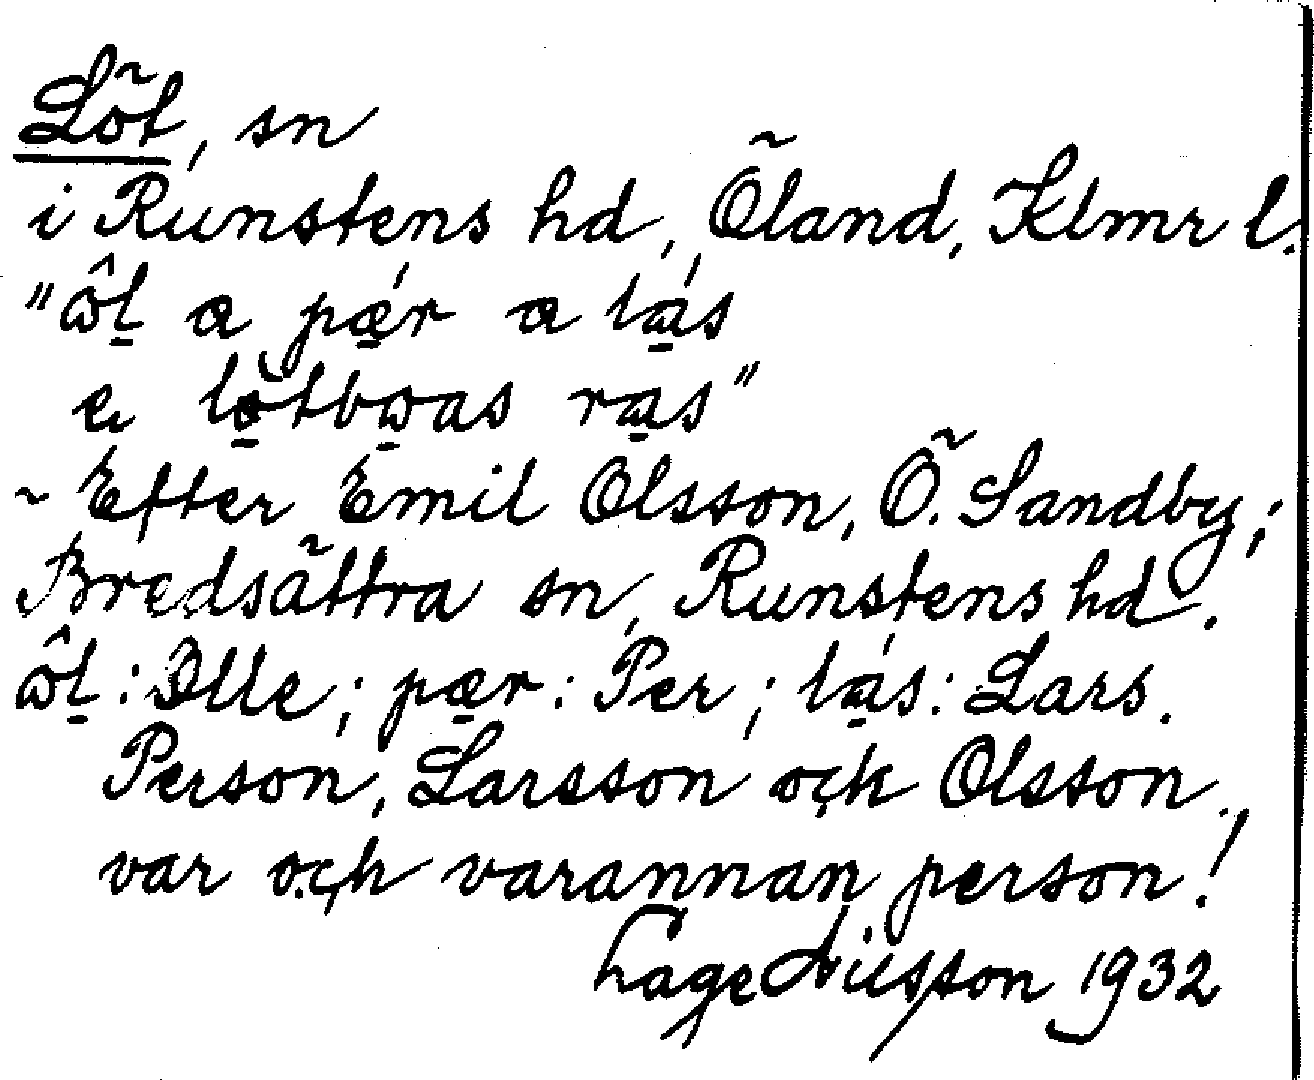 Löt, sn
i Runstens hd, Öland, Klmr l.
"ôl a pǽr a lás
e lötboas ras"
~ Efter Emil Olsson, Ö. Sandby,
Bredsättra sn, Runstens hd.
ôl : Olle ; pær : Per ; lás : Lars.
Person, Larsson och Olsson
var och varannan person!
Lage Nilsson 1932